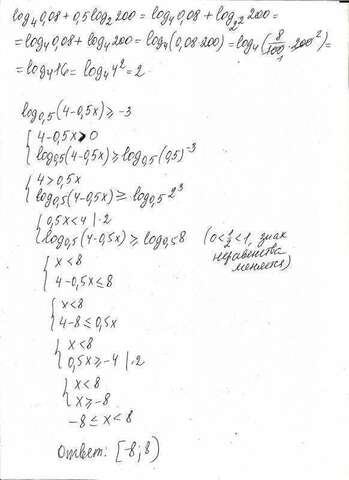 log₄0,08 + 0,5log₂200 = log₄0,08 + log₂²200 =
= log₄0,08 + log₄200 = log₄(0,08·200) = log₄(8/100·200²) =
1
= log₄16 = log₄4² = 2
log₀,₅(4-0,5x) ≥ -3
{ 4-0,5x > 0
log₀,₅(4-0,5x) ≥ log₀,₅(0,5)⁻³
{ 4 > 0,5x
log₀,₅(4-0,5x) ≥ log₀,₅2³
{ 0,5x < 4 | ·2
log₀,₅(4-0,5x) ≥ log₀,₅8 (0 < 1/2 < 1, знак
неравенства
меняется)
{ x < 8
4-0,5x ≤ 8
{ x < 8
4-8 ≤ 0,5x
{ x < 8
0,5x ≥ -4 | ·2
{ x < 8
x ≥ -8
-8 ≤ x < 8
Ответ: [-8; 8)